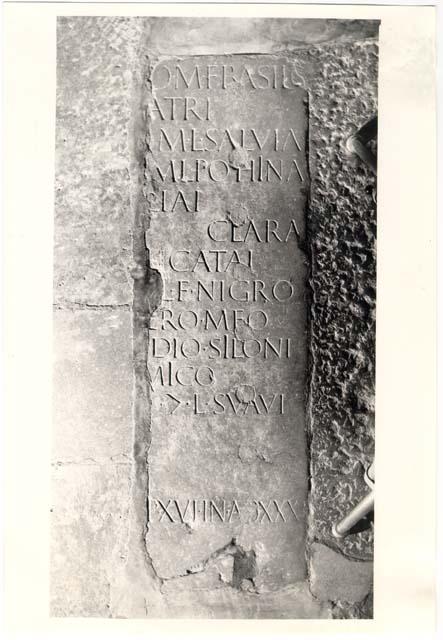 OMF BASILS
ATRI
ME SALVIA
ME POTHINA
IAI
CLARA
CATAI
L·F·NIGRO
RO·MEO
DIO·SILONI
MICO
Ↄ·L·SVAVI
P·XVI·IN·A·P·XXX